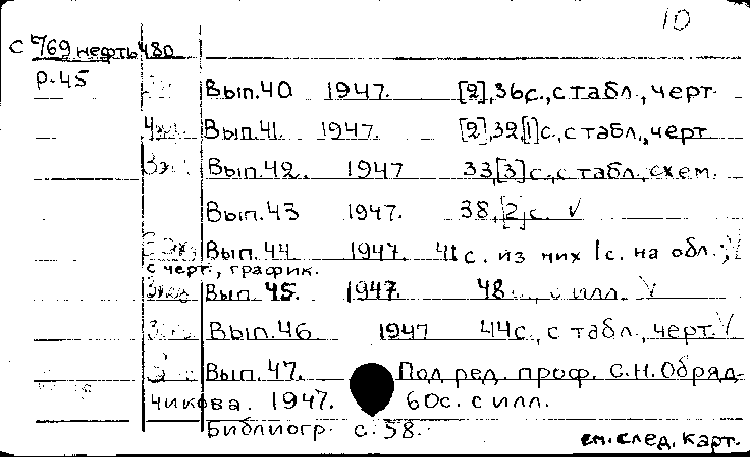 10
С 769 нефть 480
Р-45
Вып.40 1947. [2],36с., с табл., черт.
4экз. Вып.41. 1947. [2],39,[1]с., с табл., черт
3эк. Вып.42. 1947 33,[3]с., с табл., схем.
Вып.43 1947. 38,[2]с. √
Вып.44 1947. 41с. из них 1с. на обл.; √
с черт., график.
3экз Вып 45. 1947. 48 с., с илл. √
Вып.46 1947 44с., с табл., черт. √
Вып.47. Под ред. проф. С.Н.Обряд-
чикова. 1947. 60с. с илл.
Библиогр. с.58.
см. след. карт.